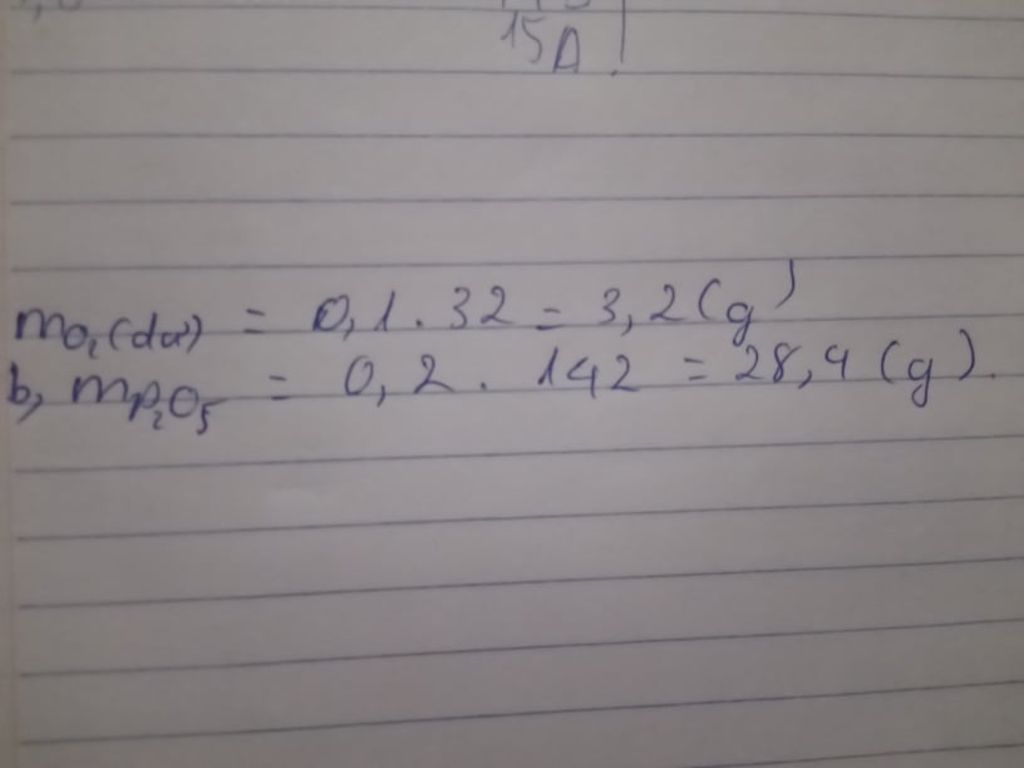 15A
mO₂(dư) = 0,1.32 = 3,2(g)
b, mP₂O₅ = 0,2. 142 = 28,4 (g).